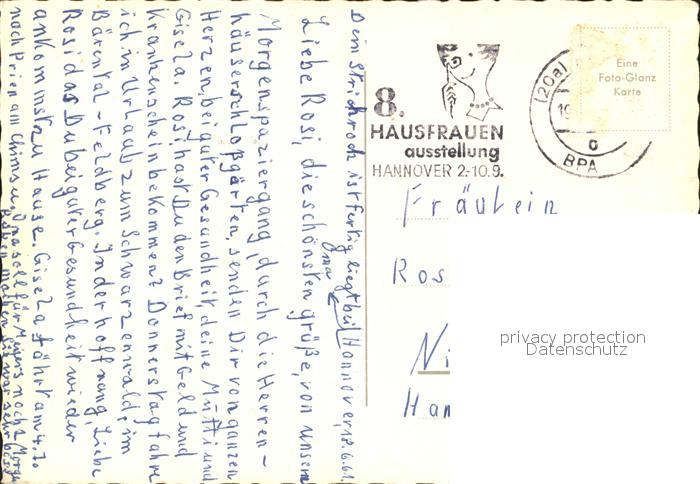 Dein Strickrock ist fertig liegt bei Hannover, 18.6.61.
Liebe Rosi, die schönsten grüße, von unsern
Morgenspaziergang, durch die Herren-
häuserschloßgärten, senden Dir von ganzen
Herzen, bei guter Gesundheit, deine Mutti und
Gisela. Rosi hast Du den Brief mit Geld und
Krankenschein bekommen? Donnerstag fahre
ich in Urlaub, zum Schwarzenwald, im
Bärental - Feldberg. In der hoffnung, Liebe
Rosi das Du bei guter Gesundheit wieder
ankommst zu Hause. Gisela fährt am 4.7.
nach Prien am Chimsee, soll für Meyers noch
machen
8.
HAUSFRAUEN
ausstellung
HANNOVER 2.-10.9.
(20a)
19
a
BPA
Eine
Foto-Glanz
Karte
Fräulein
Ros
Ni
Han
privacy protection
Datenschutz